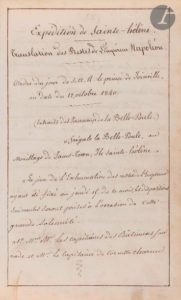 Expédition de Sainte-hélène
Translation des Restes de l'Empereur Napoléon
Ordre du jour de S. A. R. le prince de Joinville,
en date du 12 octobre 1840.
de la Belle-Poule.)
Frégate la Belle-Poule, au
Mouillage de James-Town, Ile Sainte-hélène
Le jour de l'exhumation des restes de l'Empereur
ayant été fixé au jeudi 15 de ce mois, les dispositions
suivantes seront prises à l'occasion de cette
grande solennité.
les capitaines des Bâtiments sur
rade et M. le Capitaine de